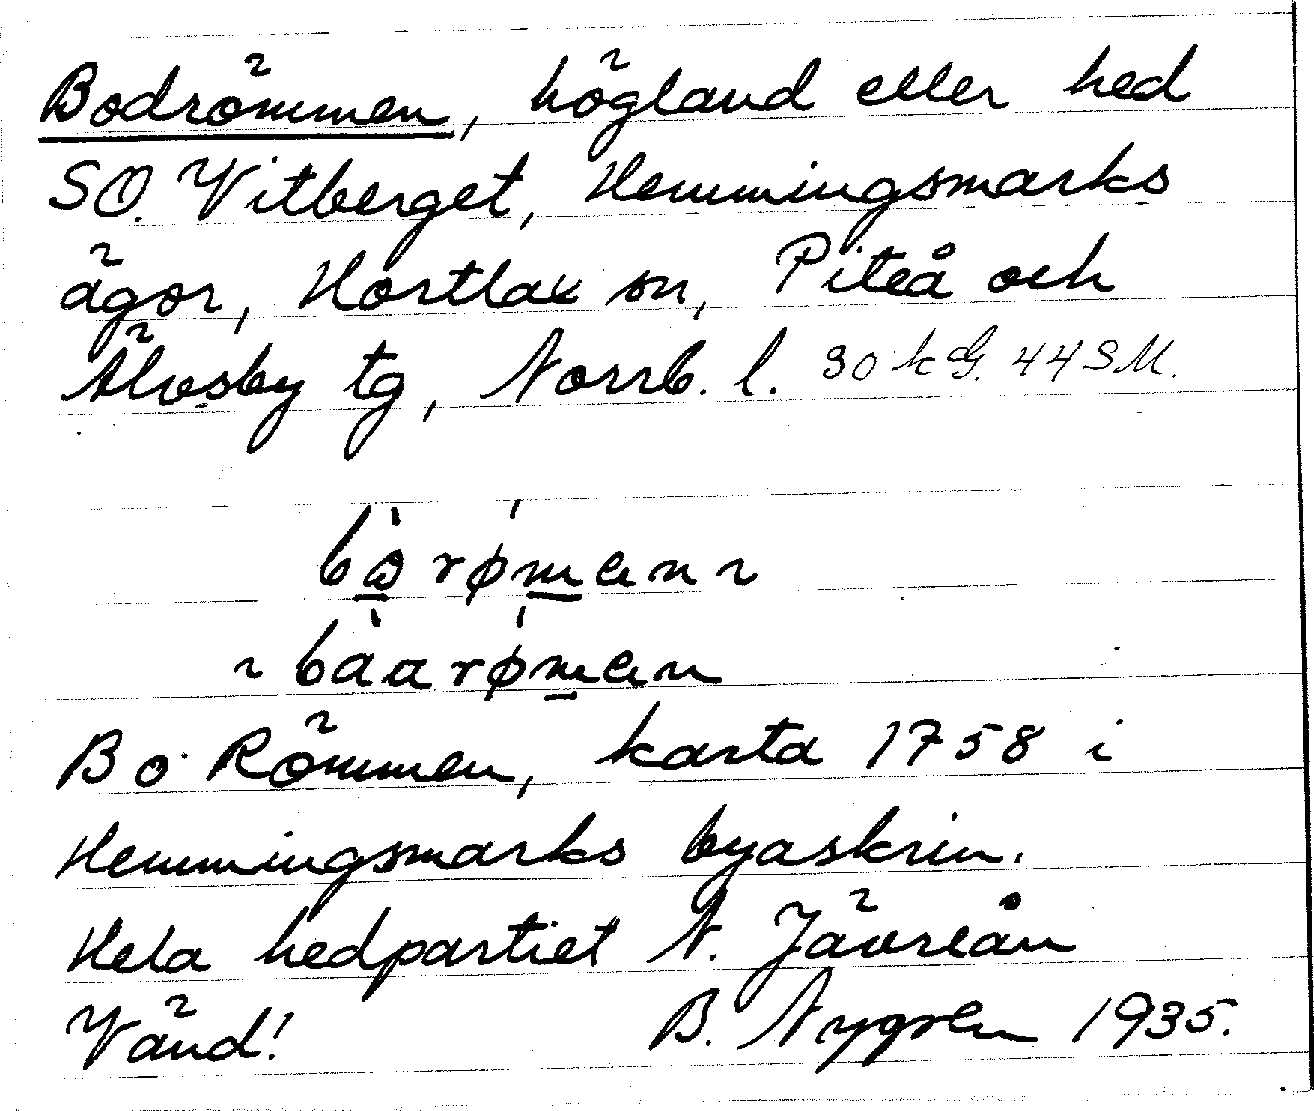 Bodrömmen, högland eller hed
SO. Vitberget, Hemmingsmarks
ägor, Hortlax sn, Piteå och
Älvsby tg, Norrb. l. 30 k G. 44 SM.
Bo Römmen, karta 1758 i
Hemmingsmarks byaskrin.
Hela hedpartiet N. Jävreån
Vänd! B. Nygren 1935.